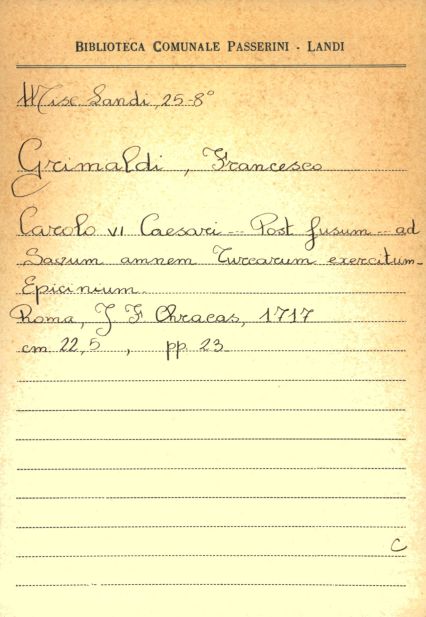 BIBLIOTECA COMUNALE PASSERINI - LANDI
Misc. Landi, 25-8°
Grimaldi, Francesco
Carolo VI Caesari -- Post fusum -- ad
Savum amnem Turcarum exercitum_
Epicinium.
Roma, J F Chracas, 1717
cm 22,5 , pp 23_
C